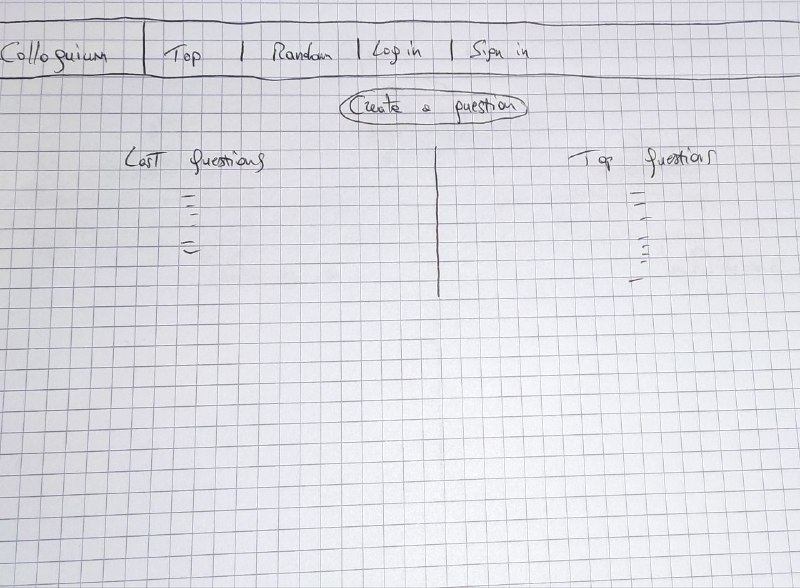 Colloquium | Top | Random | Log in | Sign in
Create a question
Last questions
Top questions